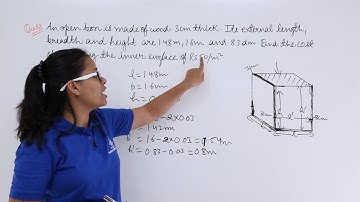 Ques An open box is made of wood 3cm thick. Its external length,
breadth and height are 1.48m, 1.6m and 83dm. Find the cost
the inner surface of Rs 50/m²
l = 1.48m
b = 1.6m
h =
- 2×0.03
= 1.42m
b' = 1.6-2×0.03 = 1.54m
h' = 0.83-0.03 = 0.8m